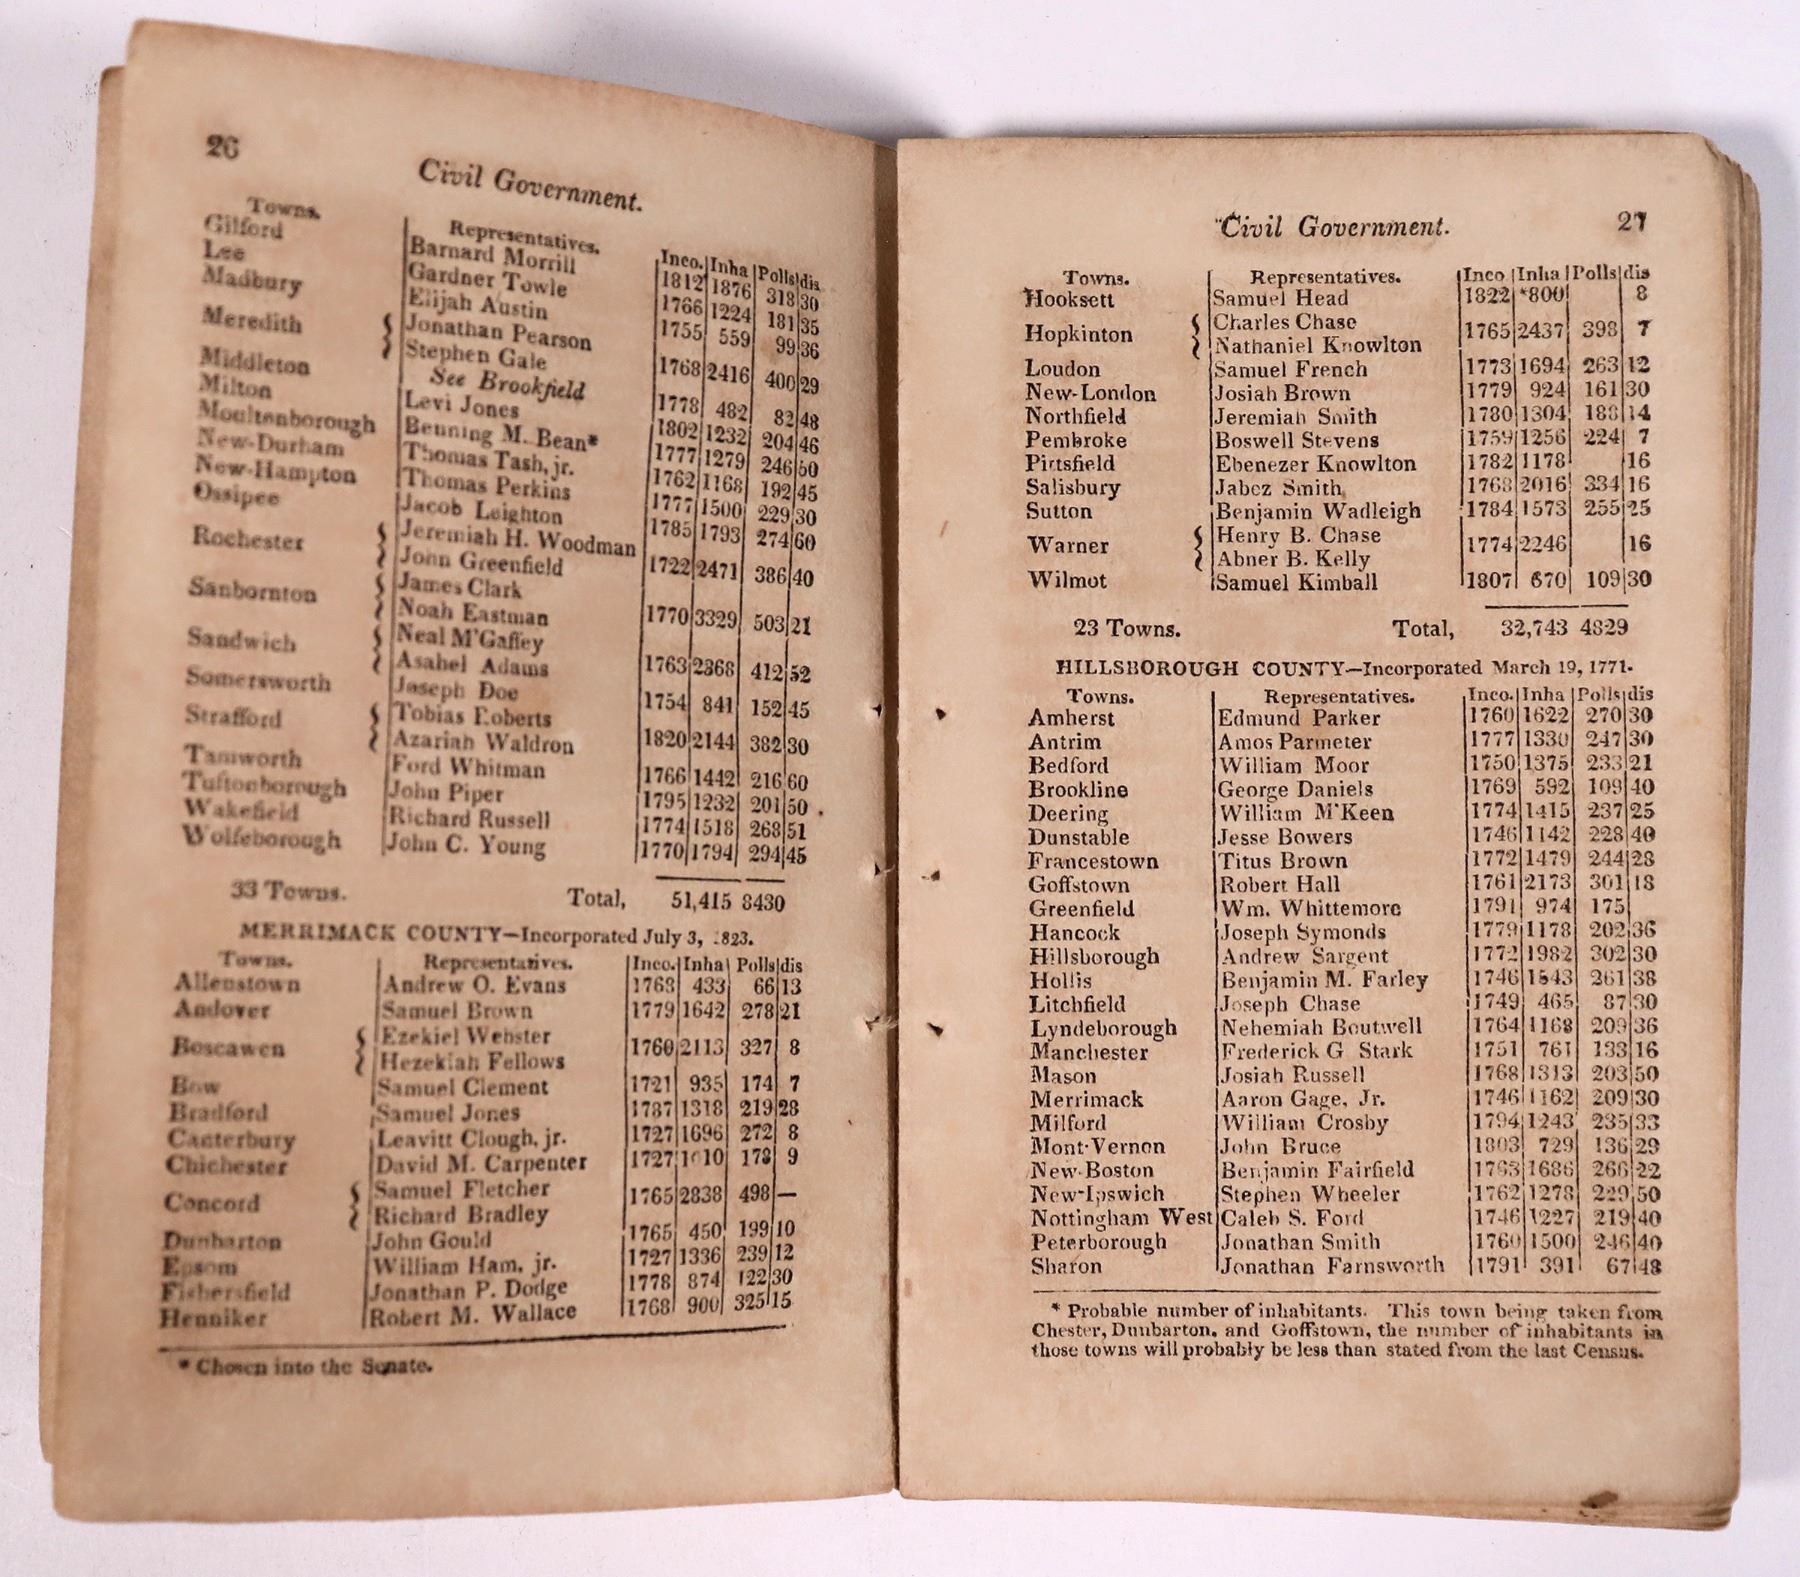 26
Civil Government.
Towns. Representatives. Inco. Inha Polls dis
Gilford Barnard Morrill 1812 1876 318 30
Lee Gardner Towle 1766 1224 181 35
Madbury Elijah Austin 1755 559 99 36
Meredith Jonathan Pearson
Stephen Gale 1768 2416 400 29
Middleton See Brookfield 1778 482 82 48
Milton Levi Jones 1802 1232 204 46
Moultenborough Benning M. Bean* 1777 1279 246 50
New-Durham Thomas Tash, jr. 1762 1168 192 45
New-Hampton Thomas Perkins 1777 1500 229 30
Ossipee Jacob Leighton 1785 1793 274 60
Rochester Jeremiah H. Woodman
John Greenfield 1722 2471 386 40
Sanbornton James Clark
Noah Eastman 1770 3329 503 21
Sandwich Neal M'Gaffey
Asahel Adams 1763 2368 412 52
Somersworth Joseph Doe 1754 841 152 45
Strafford Tobias Roberts
Azariah Waldron 1820 2144 382 30
Tamworth Ford Whitman 1766 1442 216 60
Tuftonborough John Piper 1795 1232 201 50
Wakefield Richard Russell 1774 1518 268 51
Wolfeborough John C. Young 1770 1794 294 45
33 Towns. Total, 51,415 8430
MERRIMACK COUNTY—Incorporated July 3, 1823.
Towns. Representatives. Inco. Inha Polls dis
Allenstown Andrew O. Evans 1768 433 66 13
Andover Samuel Brown 1779 1642 278 21
Boscawen Ezekiel Webster
Hezekiah Fellows 1760 2113 327 8
Bow Samuel Clement 1721 935 174 7
Bradford Samuel Jones 1787 1318 219 28
Canterbury Leavitt Clough, jr. 1727 1696 272 8
Chichester David M. Carpenter 1727 178 9
Concord Samuel Fletcher
Richard Bradley 1765 2838 498 —
Dunbarton John Gould 1765 450 199 10
Epsom William Ham, jr. 1727 1336 239 12
Fishersfield Jonathan P. Dodge 1778 874 122 30
Henniker Robert M. Wallace 1768 900 325 15
* Chosen into the Senate.
Civil Government. 27
Towns. Representatives. Inco Inha Polls dis
Hooksett Samuel Head 1822 *800 8
Hopkinton Charles Chase
Nathaniel Knowlton 1765 2437 398 7
Loudon Samuel French 1773 1694 263 12
New-London Josiah Brown 1779 924 161 30
Northfield Jeremiah Smith 1780 1304 188 14
Pembroke Boswell Stevens 1759 1256 224 7
Pittsfield Ebenezer Knowlton 1782 1178 16
Salisbury Jabez Smith 1768 2016 334 16
Sutton Benjamin Wadleigh 1784 1573 255 25
Warner Henry B. Chase
Abner B. Kelly 1774 2246 16
Wilmot Samuel Kimball 1807 670 109 30
23 Towns. Total, 32,743 4829
HILLSBOROUGH COUNTY—Incorporated March 19, 1771.
Towns. Representatives. Inco. Inha Polls dis
Amherst Edmund Parker 1760 1622 270 30
Antrim Amos Parmeter 1777 1330 247 30
Bedford William Moor 1750 1375 233 21
Brookline George Daniels 1769 592 109 40
Deering William M'Keen 1774 1415 237 25
Dunstable Jesse Bowers 1746 1142 228 40
Francestown Titus Brown 1772 1479 244 28
Goffstown Robert Hall 1761 2173 301 18
Greenfield Wm. Whittemore 1791 974 175
Hancock Joseph Symonds 1779 1178 202 36
Hillsborough Andrew Sargent 1772 1982 302 30
Hollis Benjamin M. Farley 1746 1543 261 38
Litchfield Joseph Chase 1749 465 87 30
Lyndeborough Nehemiah Boutwell 1764 1168 209 36
Manchester Frederick G Stark 1751 761 133 16
Mason Josiah Russell 1768 1313 203 50
Merrimack Aaron Gage, Jr. 1746 1162 209 30
Milford William Crosby 1794 1243 235 33
Mont-Vernon John Bruce 1803 729 136 29
New-Boston Benjamin Fairfield 1763 1686 266 22
New-Ipswich Stephen Wheeler 1762 1278 229 50
Nottingham West Caleb S. Ford 1746 1227 219 40
Peterborough Jonathan Smith 1760 1500 246 40
Sharon Jonathan Farnsworth 1791 391 67 48
* Probable number of inhabitants. This town being taken from
Chester, Dunbarton, and Goffstown, the number of inhabitants in
those towns will probably be less than stated from the last Census.